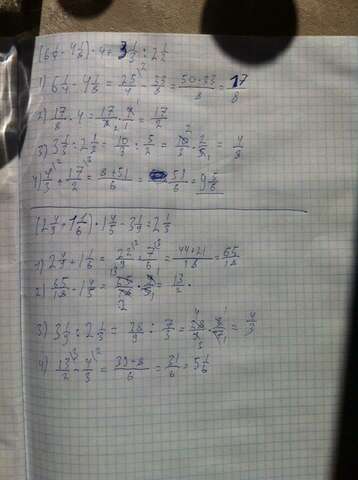 (6 1/4 - 4 1/8) · 4 + 3 1/3 : 2 1/2
1) 6 1/4 - 4 1/8 = 25/4 - 33/8 = 50-33/8 = 17/8
2) 17/8 · 4 = 17/8 · 4/1 = 17/2
3) 3 1/3 : 2 1/2 = 10/3 : 5/2 = 10/3 · 2/5 =
4) 4/3 + 17/2 = 8+51/6 = 59/6 = 9 5/6
1) 2 4/9 + 1 1/6 = 22/9 + 7/6 = 44+21/18 = 65/18
2) 65/18 · 1 4/5 = 65/18 · 9/5 = 13/2
3) 3 1/9 : 2 1/3 = 28/9 : 7/3 = 28/9 · 3/7 = 4/3
4) 13/2 - 4/3 = 39-8/6 = 31/6 = 5 1/6